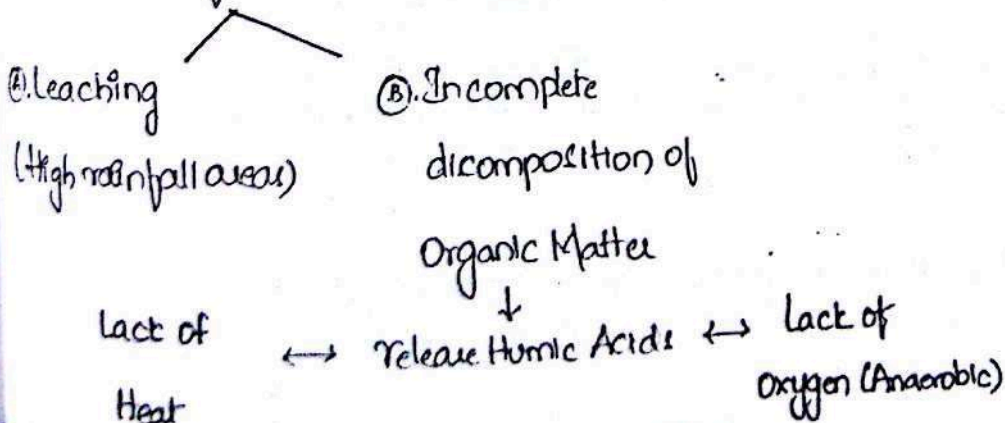 Ⓐ.leaching
(High rainfall areas)
Ⓑ.Incomplete
dicomposition of
Organic Matter
↓
Lack of
Heat
↔ release Humic Acids ↔
Lack of
Oxygen (Anaerobic)